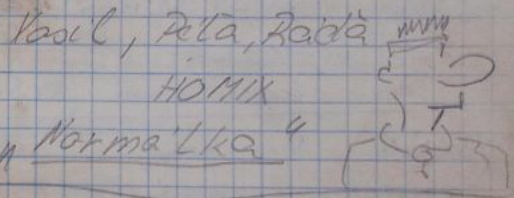 Vasil, Peťa, Raďa
HOMIX
"Normálka"